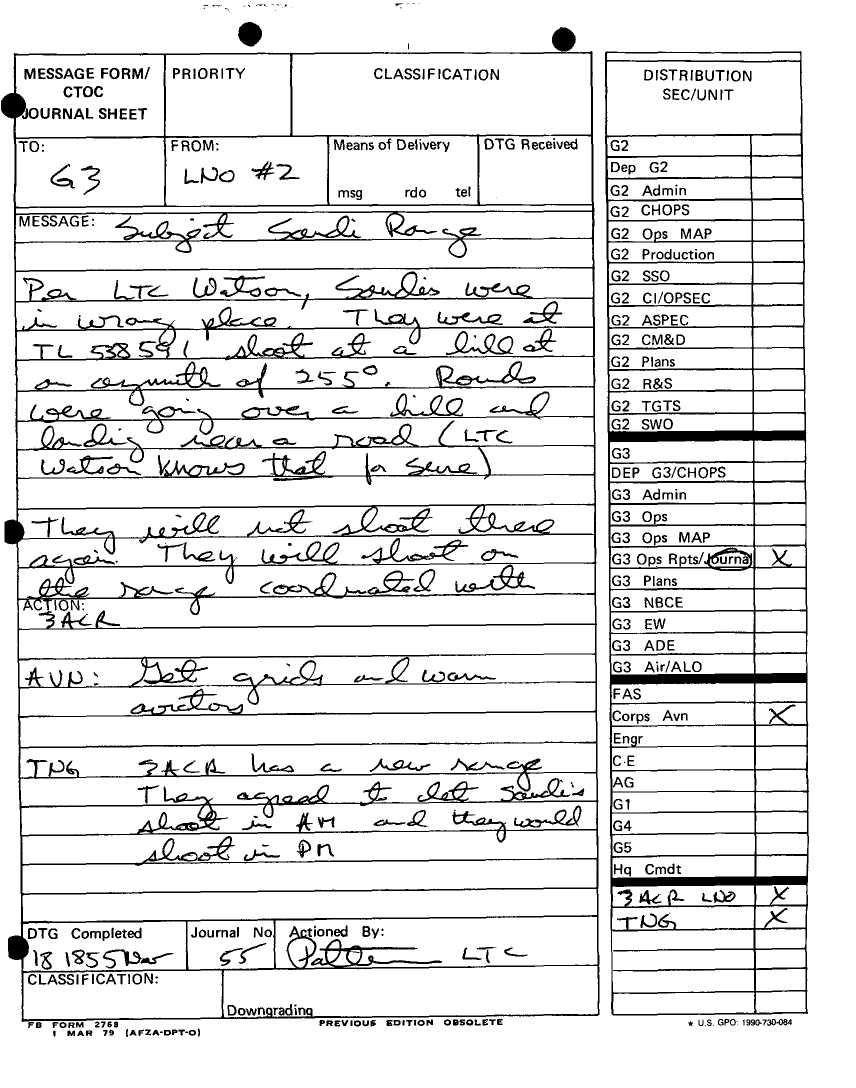 MESSAGE FORM/
CTOC
JOURNAL SHEET
PRIORITY
CLASSIFICATION
TO:
G3
FROM:
LNO #2
Means of Delivery
msg rdo tel
DTG Received
MESSAGE: Subject Saudi Range
Per LTC Watson, Saudis were
in wrong place. They were at
TL 538591 shoot at a hill at
an azymuth of 255°. Rounds
were going over a hill and
landing near a road (LTC
Watson knows that for sure)
They will not shoot there
again. They will shoot on
the range coordinated with
ACTION:
3ACR
AVN: Get grids and warn
aviators
TNG 3ACR has a new range
They agreed to let Saudi's
shoot in AM and they would
shoot in PM
DTG Completed
18 1855 Nov
Journal No
55
Actioned By:
LTC
CLASSIFICATION:
Downgrading
FB FORM 2768
1 MAR 79 (AFZA-DPT-O)
PREVIOUS EDITION OBSOLETE
DISTRIBUTION
SEC/UNIT
G2
Dep G2
G2 Admin
G2 CHOPS
G2 Ops MAP
G2 Production
G2 SSO
G2 CI/OPSEC
G2 ASPEC
G2 CM&D
G2 Plans
G2 R&S
G2 TGTS
G2 SWO
G3
DEP G3/CHOPS
G3 Admin
G3 Ops
G3 Ops MAP
G3 Ops Rpts/Journal X
G3 Plans
G3 NBCE
G3 EW
G3 ADE
G3 Air/ALO
FAS
Corps Avn X
Engr
C-E
AG
G1
G4
G5
Hq Cmdt
3ACR LNO X
TNG X
* U.S. GPO: 1990-730-084